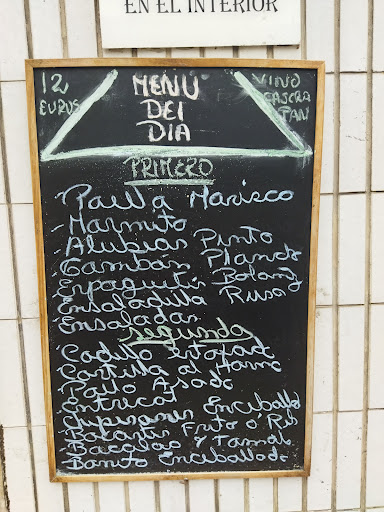 EN EL INTERIOR
12 EUROS
MENU DEL DIA
VINO CASERA PAN
PRIMERO
Paella Marisco
Marmito
Alubias Pinto
Gambas Planch
Espagueti Bolong
Ensaladilla Rusa
Ensaladas
segundo
Cadillo estofad
Costilla al Horno
Pollo Asado
Entricot
Chipirones Encebolla
Bocarte Frito o Re
Bacalao y Tomate
Bonito Encebollado